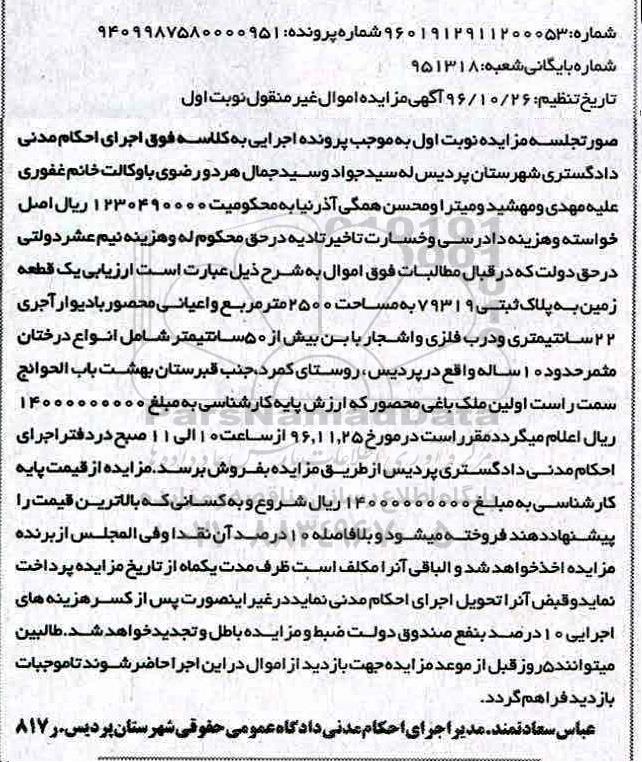 شماره: ۹۶۰۱۹۱۲۹۱۱۲۰۰۰۵۳ شماره پرونده: ۹۴۰۹۹۸۷۵۸۰۰۰۰۹۵۱
شماره بایگانی شعبه: ۹۵۱۳۱۸
تاریخ تنظیم: ۹۶/۱۰/۲۶ آگهی مزایده اموال غیر منقول نوبت اول
صورتجلسه مزایده نوبت اول به موجب پرونده اجرایی به کلاسه فوق اجرای احکام مدنی
دادگستری شهرستان پردیس له سیدجواد و سیدجمال هر دو رضوی با وکالت خانم غفوری
علیه مهدی و مهشید و میترا و محسن همگی آذرنیا به محکومیت ۱۲۳۰۴۹۰۰۰۰ ریال اصل
خواسته و هزینه دادرسی و خسارت تاخیر تادیه در حق محکوم له و هزینه نیم عشر دولتی
در حق دولت که در قبال مطالبات فوق اموال به شرح ذیل عبارت است ارزیابی یک قطعه
زمین به پلاک ثبتی ۷۹۳۱۹ به مساحت ۲۵۰۰ متر مربع و اعیانی محصور با دیوار آجری
۲۲ سانتیمتری و درب فلزی و اشجار با بن بیش از ۵۰ سانتیمتر شامل انواع درختان
مثمر حدود ۱۰ ساله واقع در پردیس، روستای کمرد، جنب قبرستان بهشت باب الحوائج
سمت راست اولین ملک باغی محصور که ارزش پایه کارشناسی به مبلغ ۱۴۰۰۰۰۰۰۰۰۰
ریال اعلام میگردد مقرر است در مورخ ۹۶,۱۱,۲۵ از ساعت ۱۰ الی ۱۱ صبح در دفتر اجرای
احکام مدنی دادگستری پردیس از طریق مزایده بفروش برسد. مزایده از قیمت پایه
کارشناسی به مبلغ ۱۴۰۰۰۰۰۰۰۰۰ ریال شروع و به کسانی که بالاترین قیمت را
پیشنهاد دهند فروخته میشود و بلافاصله ۱۰ درصد آن نقدا و فی المجلس از برنده
مزایده اخذ خواهد شد و الباقی آنرا مکلف است ظرف مدت یکماه از تاریخ مزایده پرداخت
نماید و قبض آنرا تحویل اجرای احکام مدنی نماید در غیر اینصورت پس از کسر هزینه های
اجرایی ۱۰ درصد بنفع صندوق دولت ضبط و مزایده باطل و تجدید خواهد شد. طالبین
میتوانند ۵ روز قبل از موعد مزایده جهت بازدید از اموال در این اجرا حاضر شوند تا موجبات
بازدید فراهم گردد.
عباس سعادتمند. مدیر اجرای احکام مدنی دادگاه عمومی حقوقی شهرستان پردیس. ر ۸۱۷